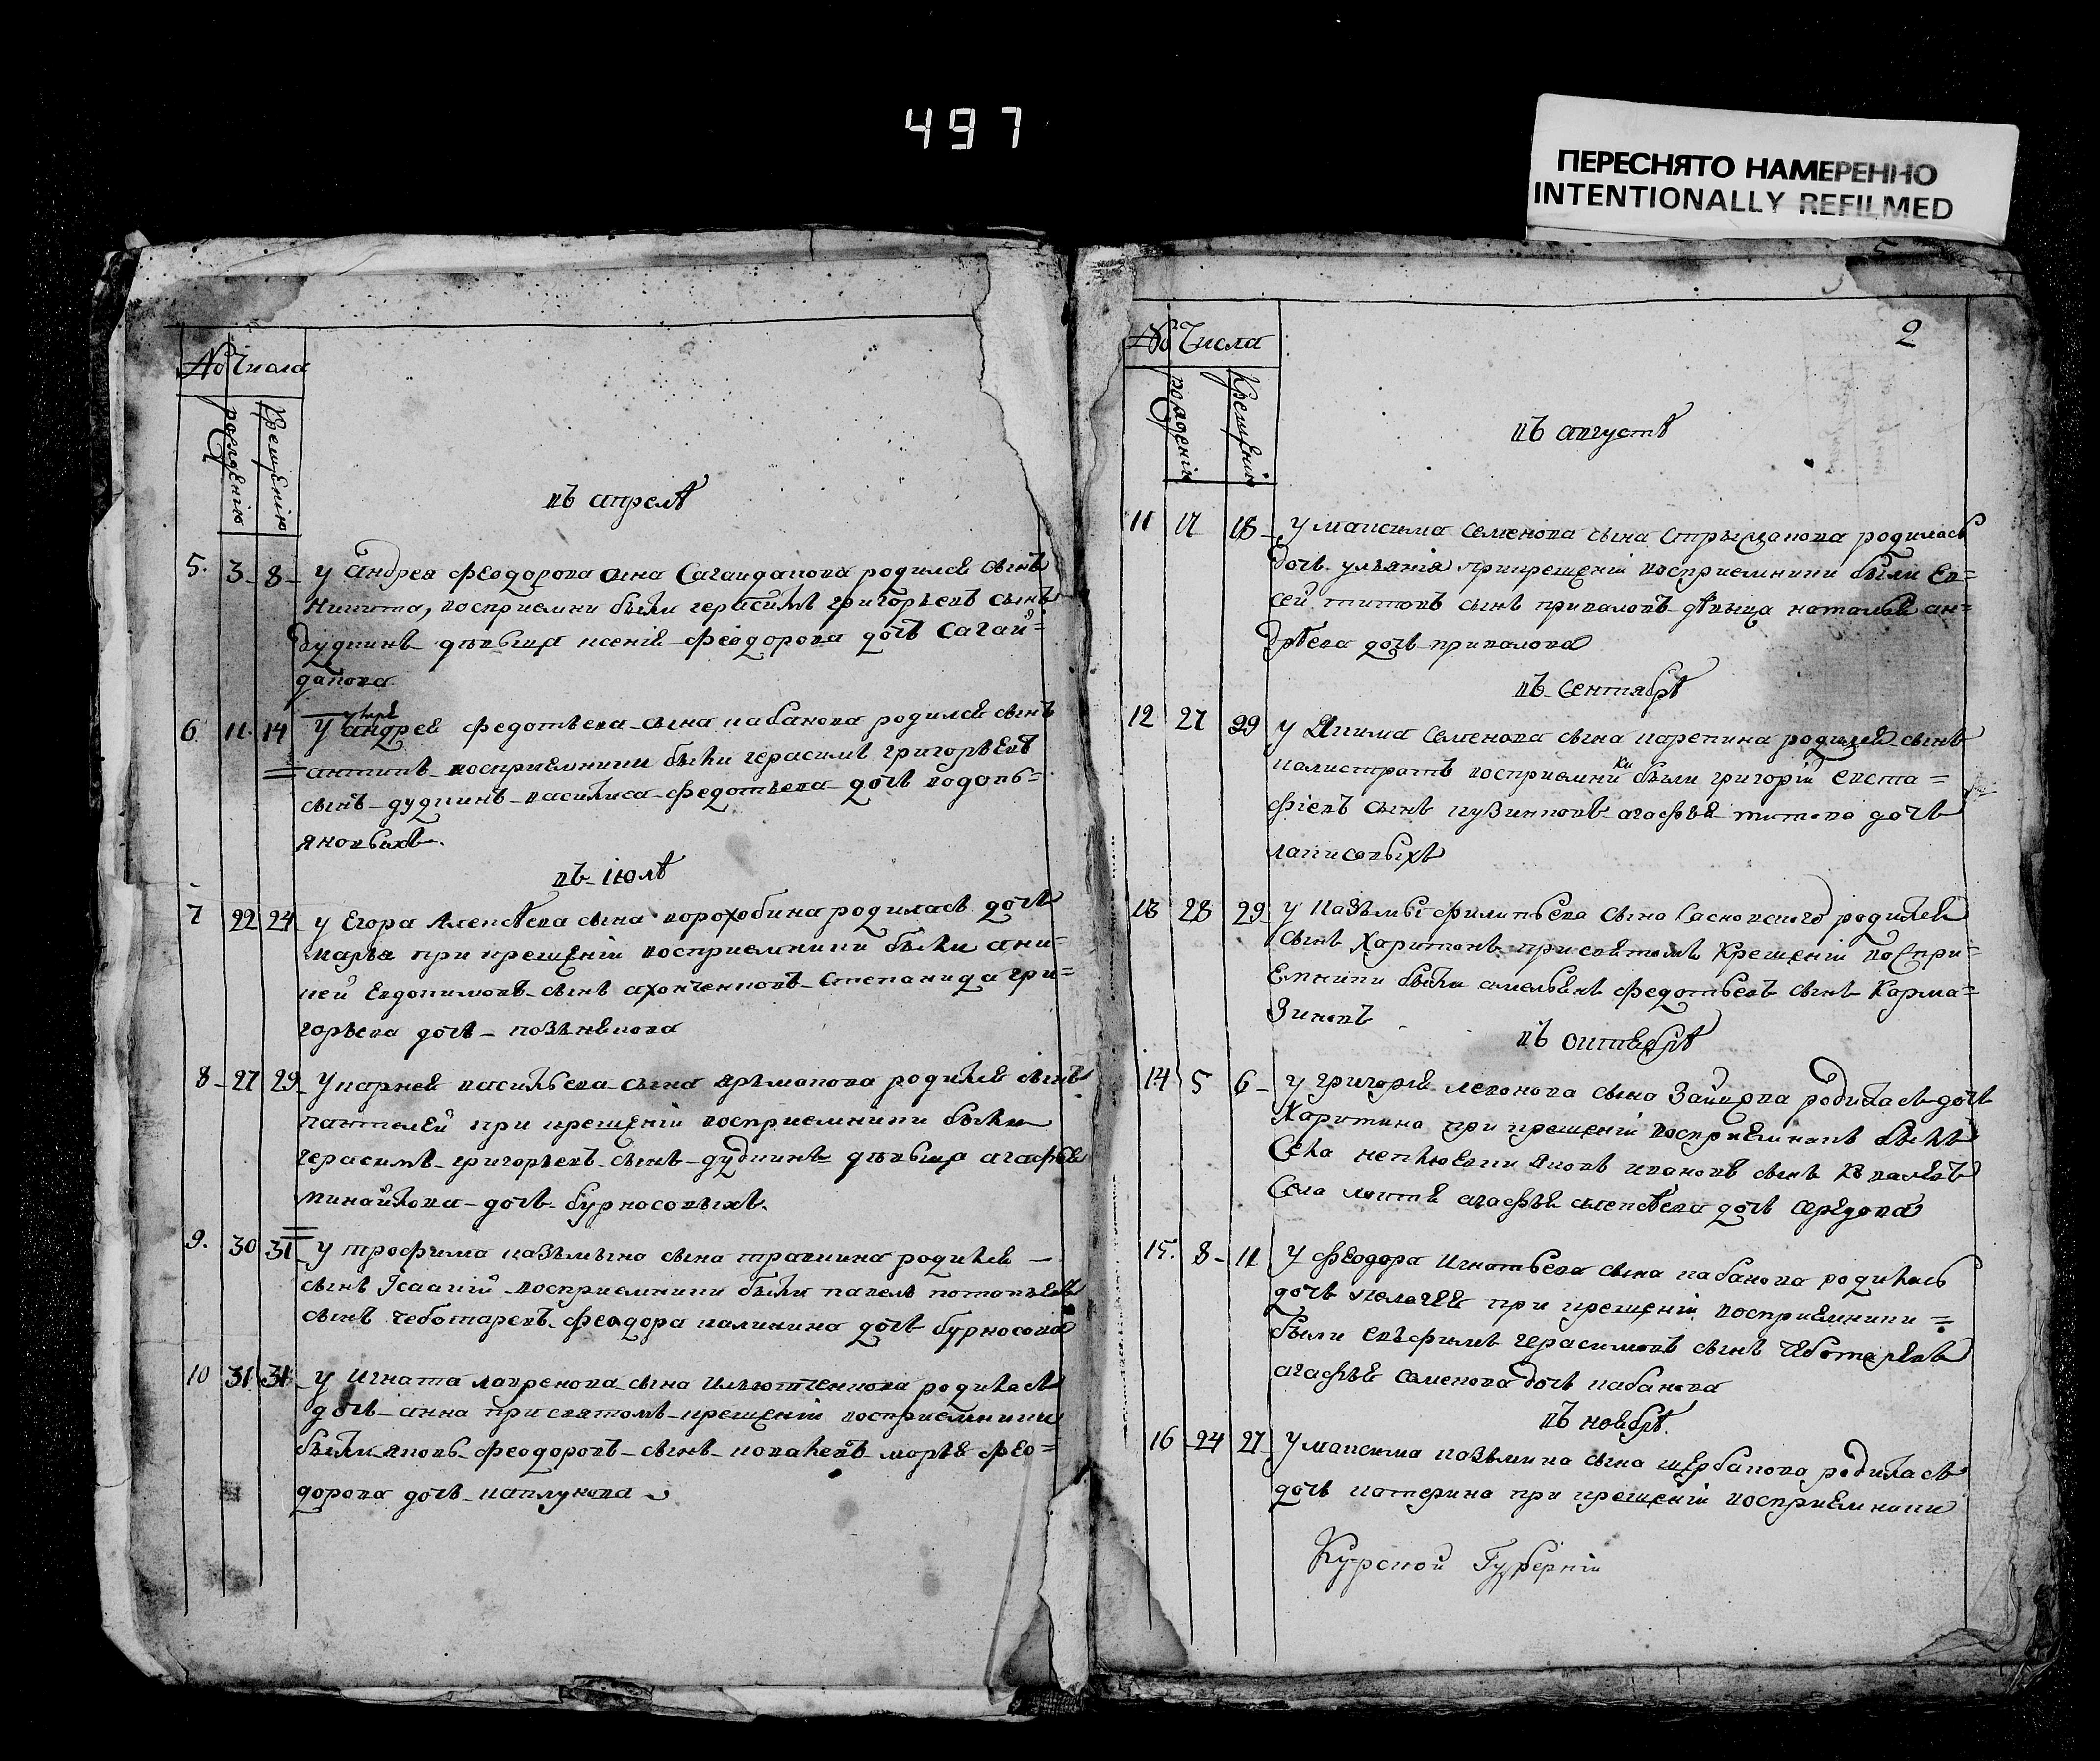 497
ПЕРЕСНЯТО НАМЕРЕННО
INTENTIONALLY REFILMED
№ Числа
рождению
крещению
въ апрелѣ
5. 3 8 у андрея феодорова сина Сагайдакова родился сынъ
Никита, восприемни были герасимъ григорьевъ сынъ
дудкинъ дѣвыца ксения феодорова дочь Сагай=
дакова
6 11 14 у андрея федотьева сына кабанова родился сынъ
антипъ восприемники были герасимъ григорьевъ
сынъ дудкинъ василиса федотьева дочь водопь=
яновыхъ.
въ июлѣ
7 22 24 у Егора Алексѣева сына порохобина родилась дочь
марья при крещении восприемники были ани=
кей Евдокимовъ сынъ Степанида гри=
горьева дочь
8 27 29 у карнея васильева сына ярмакова родился сынъ
пантелей при крещении восприемники были
герасимъ григорьевъ сынъ дудкинъ дѣвыца агафья
михайлова дочь бурносовыхъ.
9. 30 31 у трофима казьмына сына травкина родился
сынъ Iсаакий восприемники были павелъ потапьевъ
сынъ чеботаревъ феодора калинина дочь бурносова
10 31 31 у Игната лавренова сына родилась
дочь анна при святомъ крещении восприемники
были яковъ феодоровъ сынъ ковалевъ марья фео=
дорова дочь каплунова
2
№ Числа
рождению
Крещению
въ августѣ
11 17 18 у максима Семенова сына Стрыжакова родилась
дочь ульяния прикрещении восприемники были Ев=
сей титовъ сынъ приваловъ дѣвыца наталья ан=
дрѣева дочь привалова
въ Сентябрѣ
12 27 29 у Якима Семенова сына карепина родился сынъ
калистратъ восприемники были григорий евста=
фиевъ сынъ пузинковъ агафья титова дочь
лаписовыхъ
13 28 29 у казьмы филипьева сына Сасновского родился
сынъ Харитонъ при святомъ Крещении воспри=
емники были амельянъ федотьевъ сынъ Карма=
зиновъ
въ октябрѣ
14 5 6 у григория левонова сына Зайцова родилась дочь
Харитина при крещении восприемникъ былъ
Села неклюевки яковъ ивановъ сынъ Ковалевъ
Села агафья алексѣева дочь
15. 8 11 у феодора Игнатьева сына кабанова родилась
дочь пелагея при крещении восприемники
были евъфимъ герасимовъ сынъ чеботаревъ
агафья Семенова дочь кабанова
въ ноябрѣ.
16 24 27 у максима козьмина сына щербакова родилась
дочь катерина при крещении восприемники
Курской Губернии